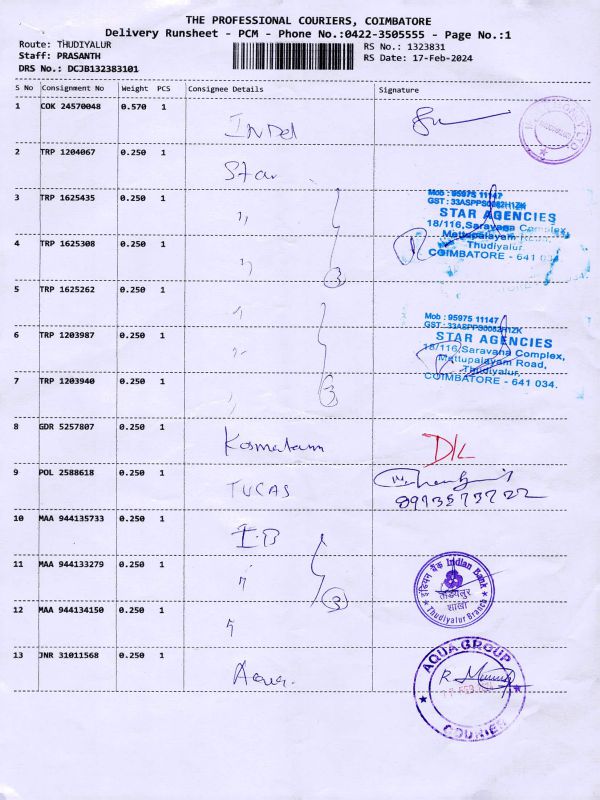 THE PROFESSIONAL COURIERS, COIMBATORE
Delivery Runsheet - PCM - Phone No.:0422-3505555 - Page No.:1
Route: THUDIYALUR
RS No.: 1323831
Staff: PRASANTH
RS Date: 17-Feb-2024
DRS No.: DCJB132383101
S No Consignment No Weight PCS Consignee Details Signature
1 COK 24570048 0.570 1
2 TRP 1204067 0.250 1 Star
3 TRP 1625435 0.250 1 "
Mob : 95975 11147
GST : 33ASPPS0082H1ZK
STAR AGENCIES
18/116,Saravana Complex,
Mettupalayam Road,
Thudiyalur,
COIMBATORE - 641 034.
4 TRP 1625308 0.250 1 " 3
5 TRP 1625262 0.250 1 "
Mob : 95975 11147
GST : 33ASPPS0082H1ZK
STAR AGENCIES
18/116,Saravana Complex,
Mettupalayam Road,
Thudiyalur,
COIMBATORE - 641 034.
6 TRP 1203987 0.250 1 "
7 TRP 1203940 0.250 1 " 3
8 GDR 5257807 0.250 1
9 POL 2588618 0.250 1 TUCAS
10 MAA 944135733 0.250 1 I.B
11 MAA 944133279 0.250 1 "
3
इंडियन बैंक Indian Bank
तुडियलूर
शाखा
Thudiyalur Branch
12 MAA 944134150 0.250 1 "
13 JNR 31011568 0.250 1 Aqua.
AQUA GROUP
COURIER